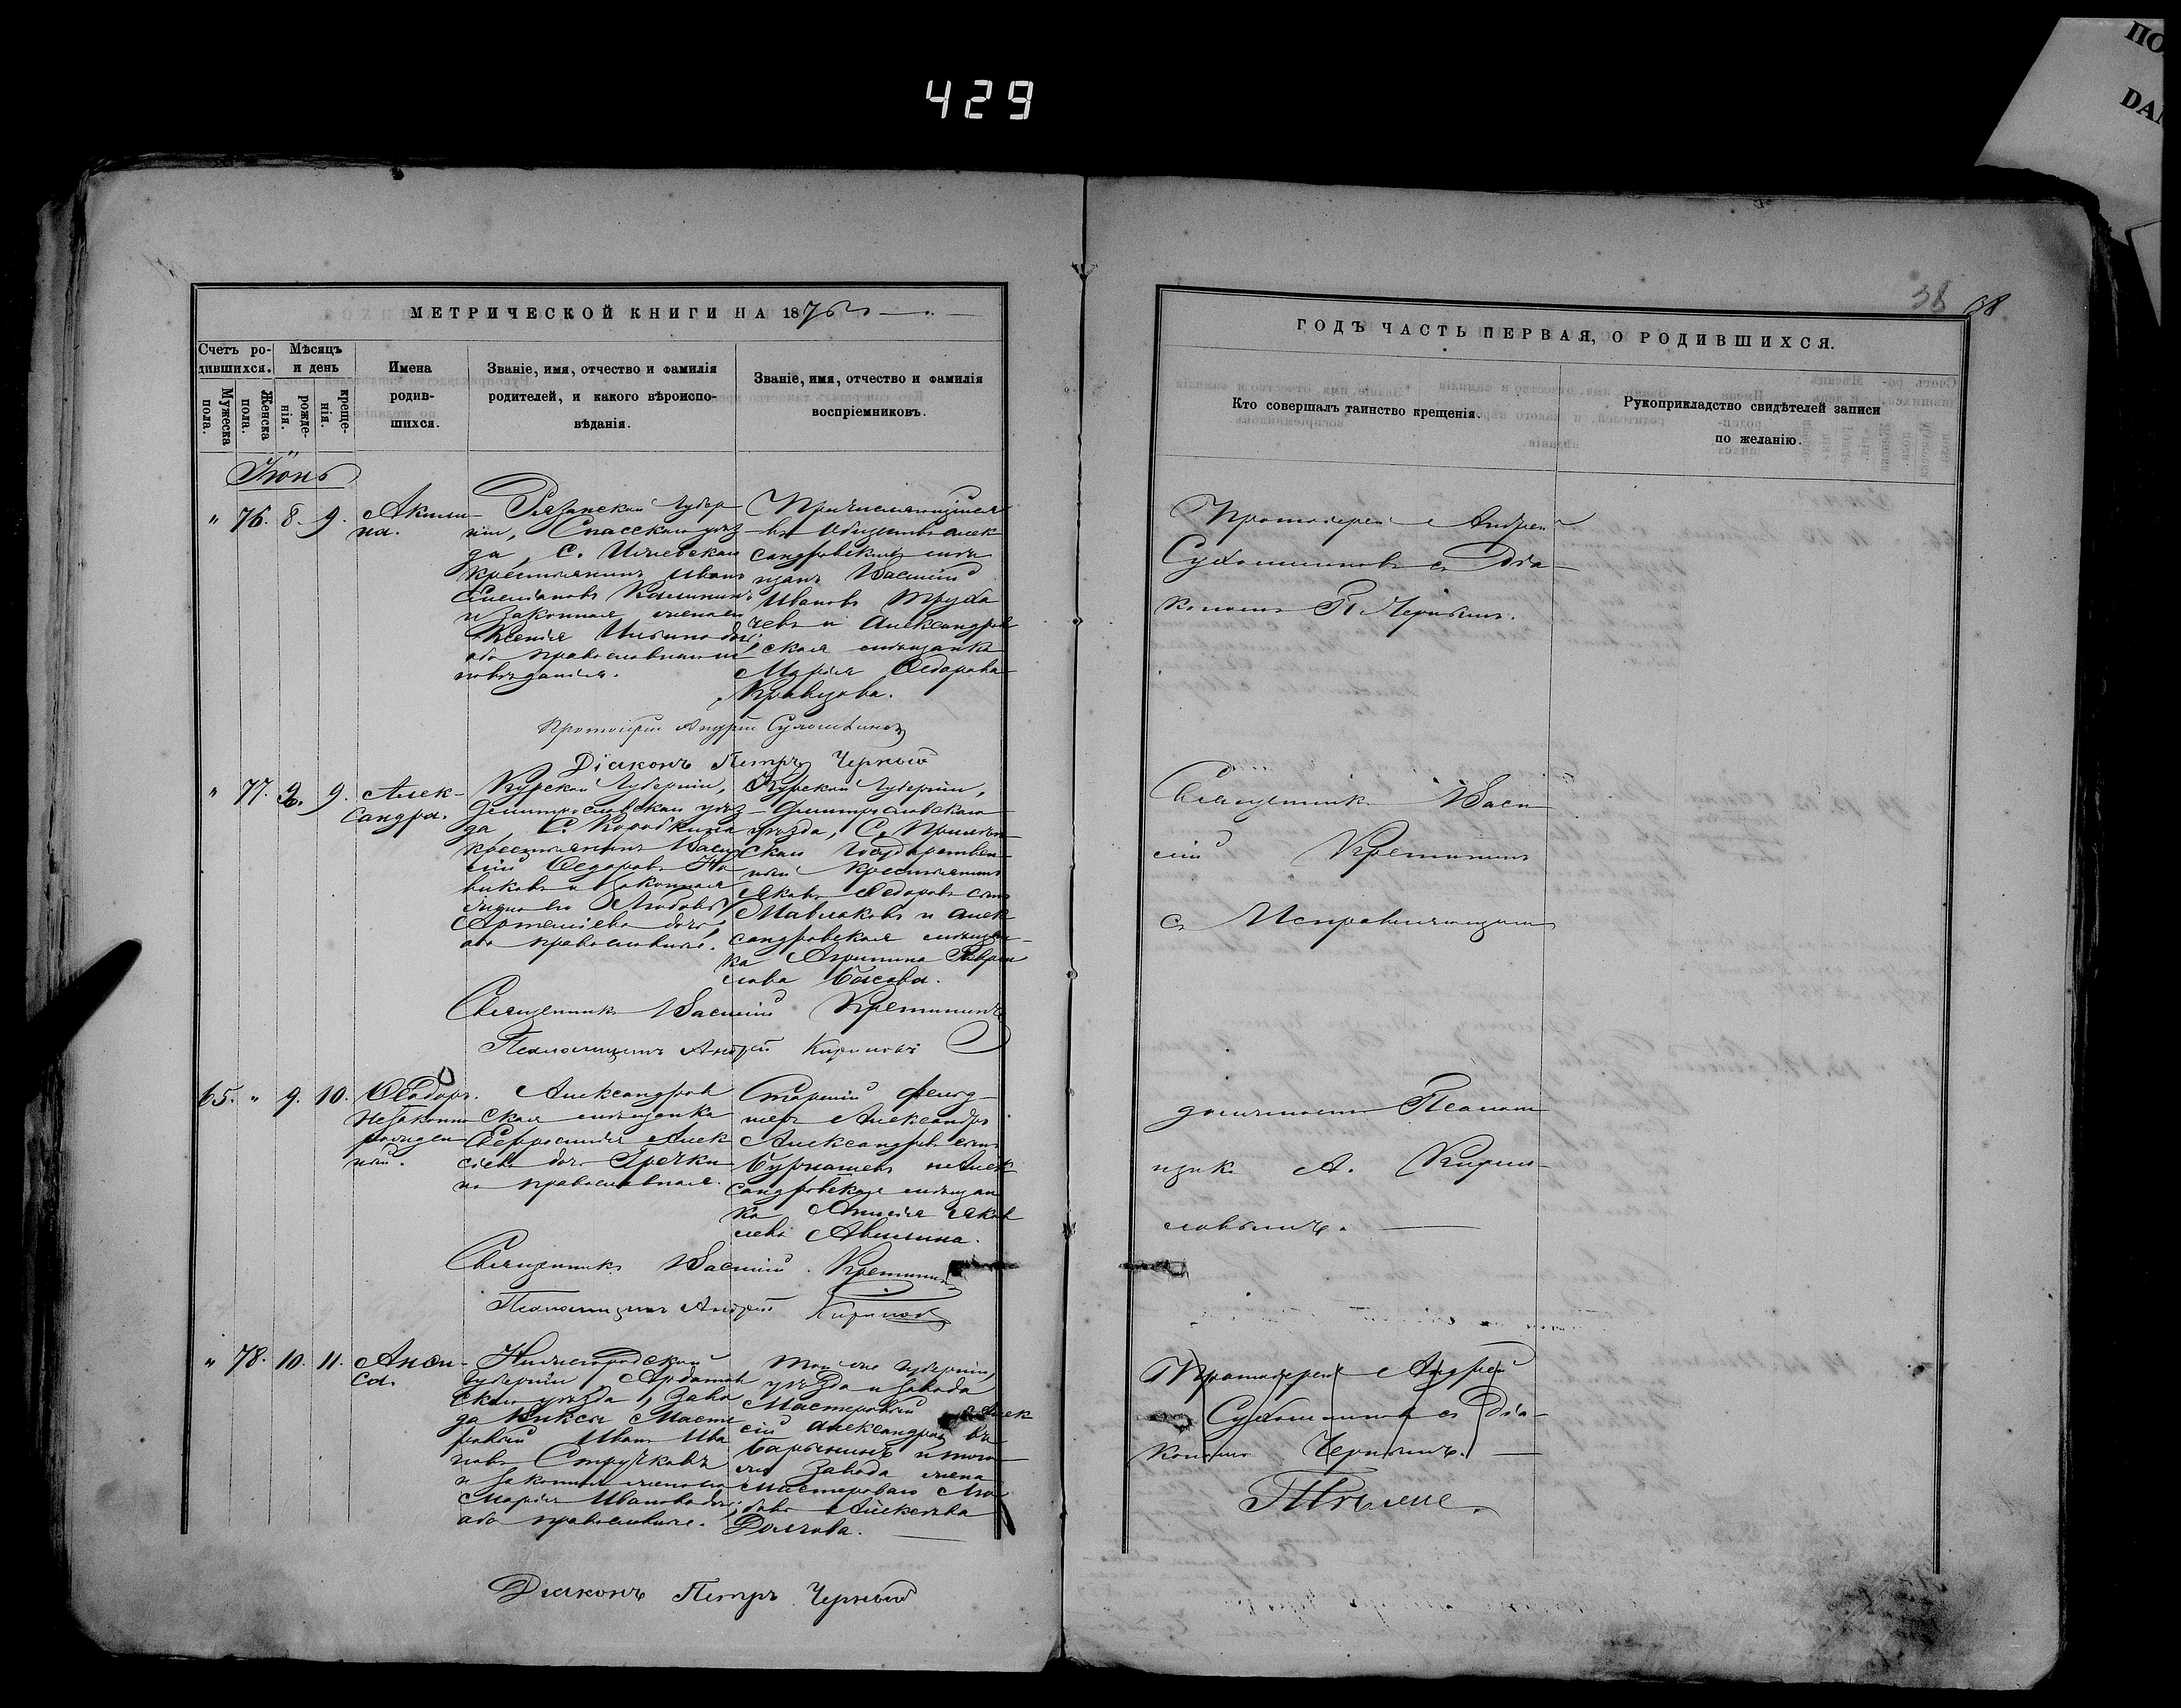 429
ПО
DA
38 38
МЕТРИЧЕСКОЙ КНИГИ НА 1876
Счетъ ро-
дившихся.
Мужеска
пола.
Женска
пола.
Мѣсяцъ
и день
рожде-
нія.
креще-
нія.
Имена
родив-
шихся.
Званіе, имя, отчество и фамилія
родителей, и какого вѣроиспо-
вѣданія.
Званіе, имя, отчество и фамилія
воспріемниковъ.
Іюнь
" 76. 8. 9.
Акили-
на.
Рязанской Губер
ніи, Спасскаго уѣз
да, С.
крестьянинъ Иванъ
Степановъ
и законная жена его
Ксенія
оба православнаго
повѣданія.
Причисляющійся
въ общество Алек
сандровскихъ мѣ
щанъ Василій
Ивановъ Труба
чевъ и Александров
ская мѣщанка
Марія Ѳедорова
Кравцова.
Протоіерей Андрей Сухомлиновъ
Діаконъ Петръ Черный
" 77. 9.
Алек-
сандра.
Курской Губерніи,
Дмитрославскаго уѣз
да, С. Коробкина
крестьянинъ Васи
лій Ѳедоровъ Но
виковъ и законная
жена его Любовь
Артемьева дочь,
оба православные.
Курской Губерніи,
Дмитрославскаго
уѣзда, С.
скаго Государствен
ный крестьянинъ
Яковъ Ѳедоровъ сынъ
и Алек
сандровская мѣщан-
ка Агрипина Гаври
лова Басова.
Священникъ Василій Кретининъ
Псаломщикъ Андрей
65. " 9. 10.
Ѳеодоръ.
Незаконно
рожден
ный.
Александров
ская мѣщанка
Евфросинія Алек
сіева дочь
православная.
Старшій Фельд-
шеръ Александръ
Александровъ сынъ
Бурнашевъ и Алек
сандровская мѣщан
ка Яков
лева
Священникъ Василій Кретининъ
Псаломщикъ Андрей
" 78. 10. 11.
Анфи-
са.
Нижегородской
губерніи, Ардатов
скаго уѣзда, Заво
да Выксы Масте
ровый Иванъ Ива
новъ Стручковъ
и законная жена его
Марія Иванова дочь,
оба православные.
Той же губерніи,
уѣзда и завода
Мастеровый Алек
сій Александровъ
и того
же Завода жена
мастероваго Лю
бовь Алексѣева
Долгова.
Діаконъ Петръ Черный
ГОДЪ ЧАСТЬ ПЕРВАЯ, О РОДИВШИХСЯ.
Кто совершалъ таинство крещенія.
Рукоприкладство свидѣтелей записи
по желанію.
Протоіерей Андрей
Сухомлиновъ съ Діа-
кономъ П. Чернымъ.
Священникъ Васи
лій Кретининъ
съ Исправляющимъ
должность Псаломъ
щика А. Кирил-
ловымъ.
Протоіерей Андрей
Сухомлиновъ съ Діа-
кономъ Чернымъ.